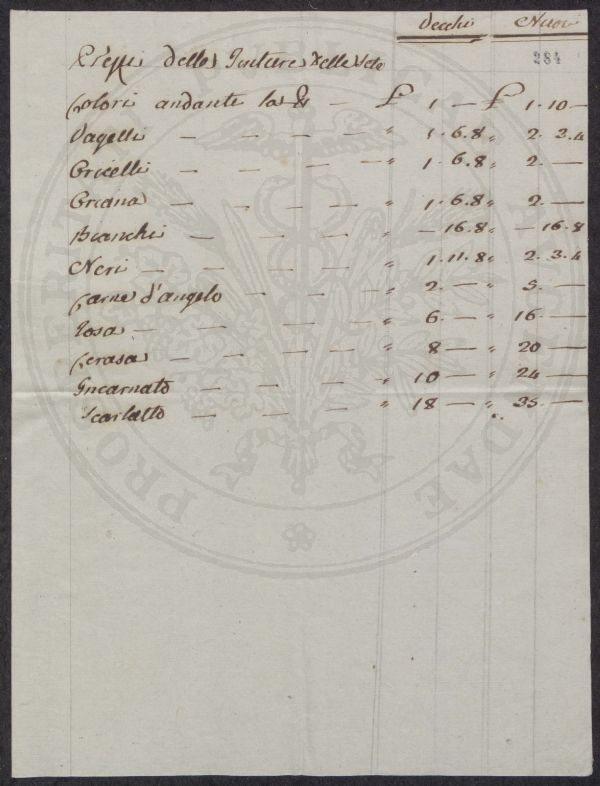 Vecchi Nuovi
284
Prezzi delle Tinture delle Sete
Colori andante la ℔ — £ 1 — £ 1.10 —
Vagelli — — — — " 1.6.8 " 2.3.4
Oricelli — — — — " 1.6.8 " 2. —
Griana — — — — " 1.6.8 " 2. —
Bianchi — — — " — 16.8 " — 16.8
Neri — — — — " 1.11.8 " 2.3.4
Carne d'angelo — — — " 2. — " 5. —
Rosa — — — — " 6. — " 16 —
Cerasa — — — — " 8 — " 20 —
Incarnato — — — " 10 — " 24 —
Scarlatto — — — " 18 — " 35. —